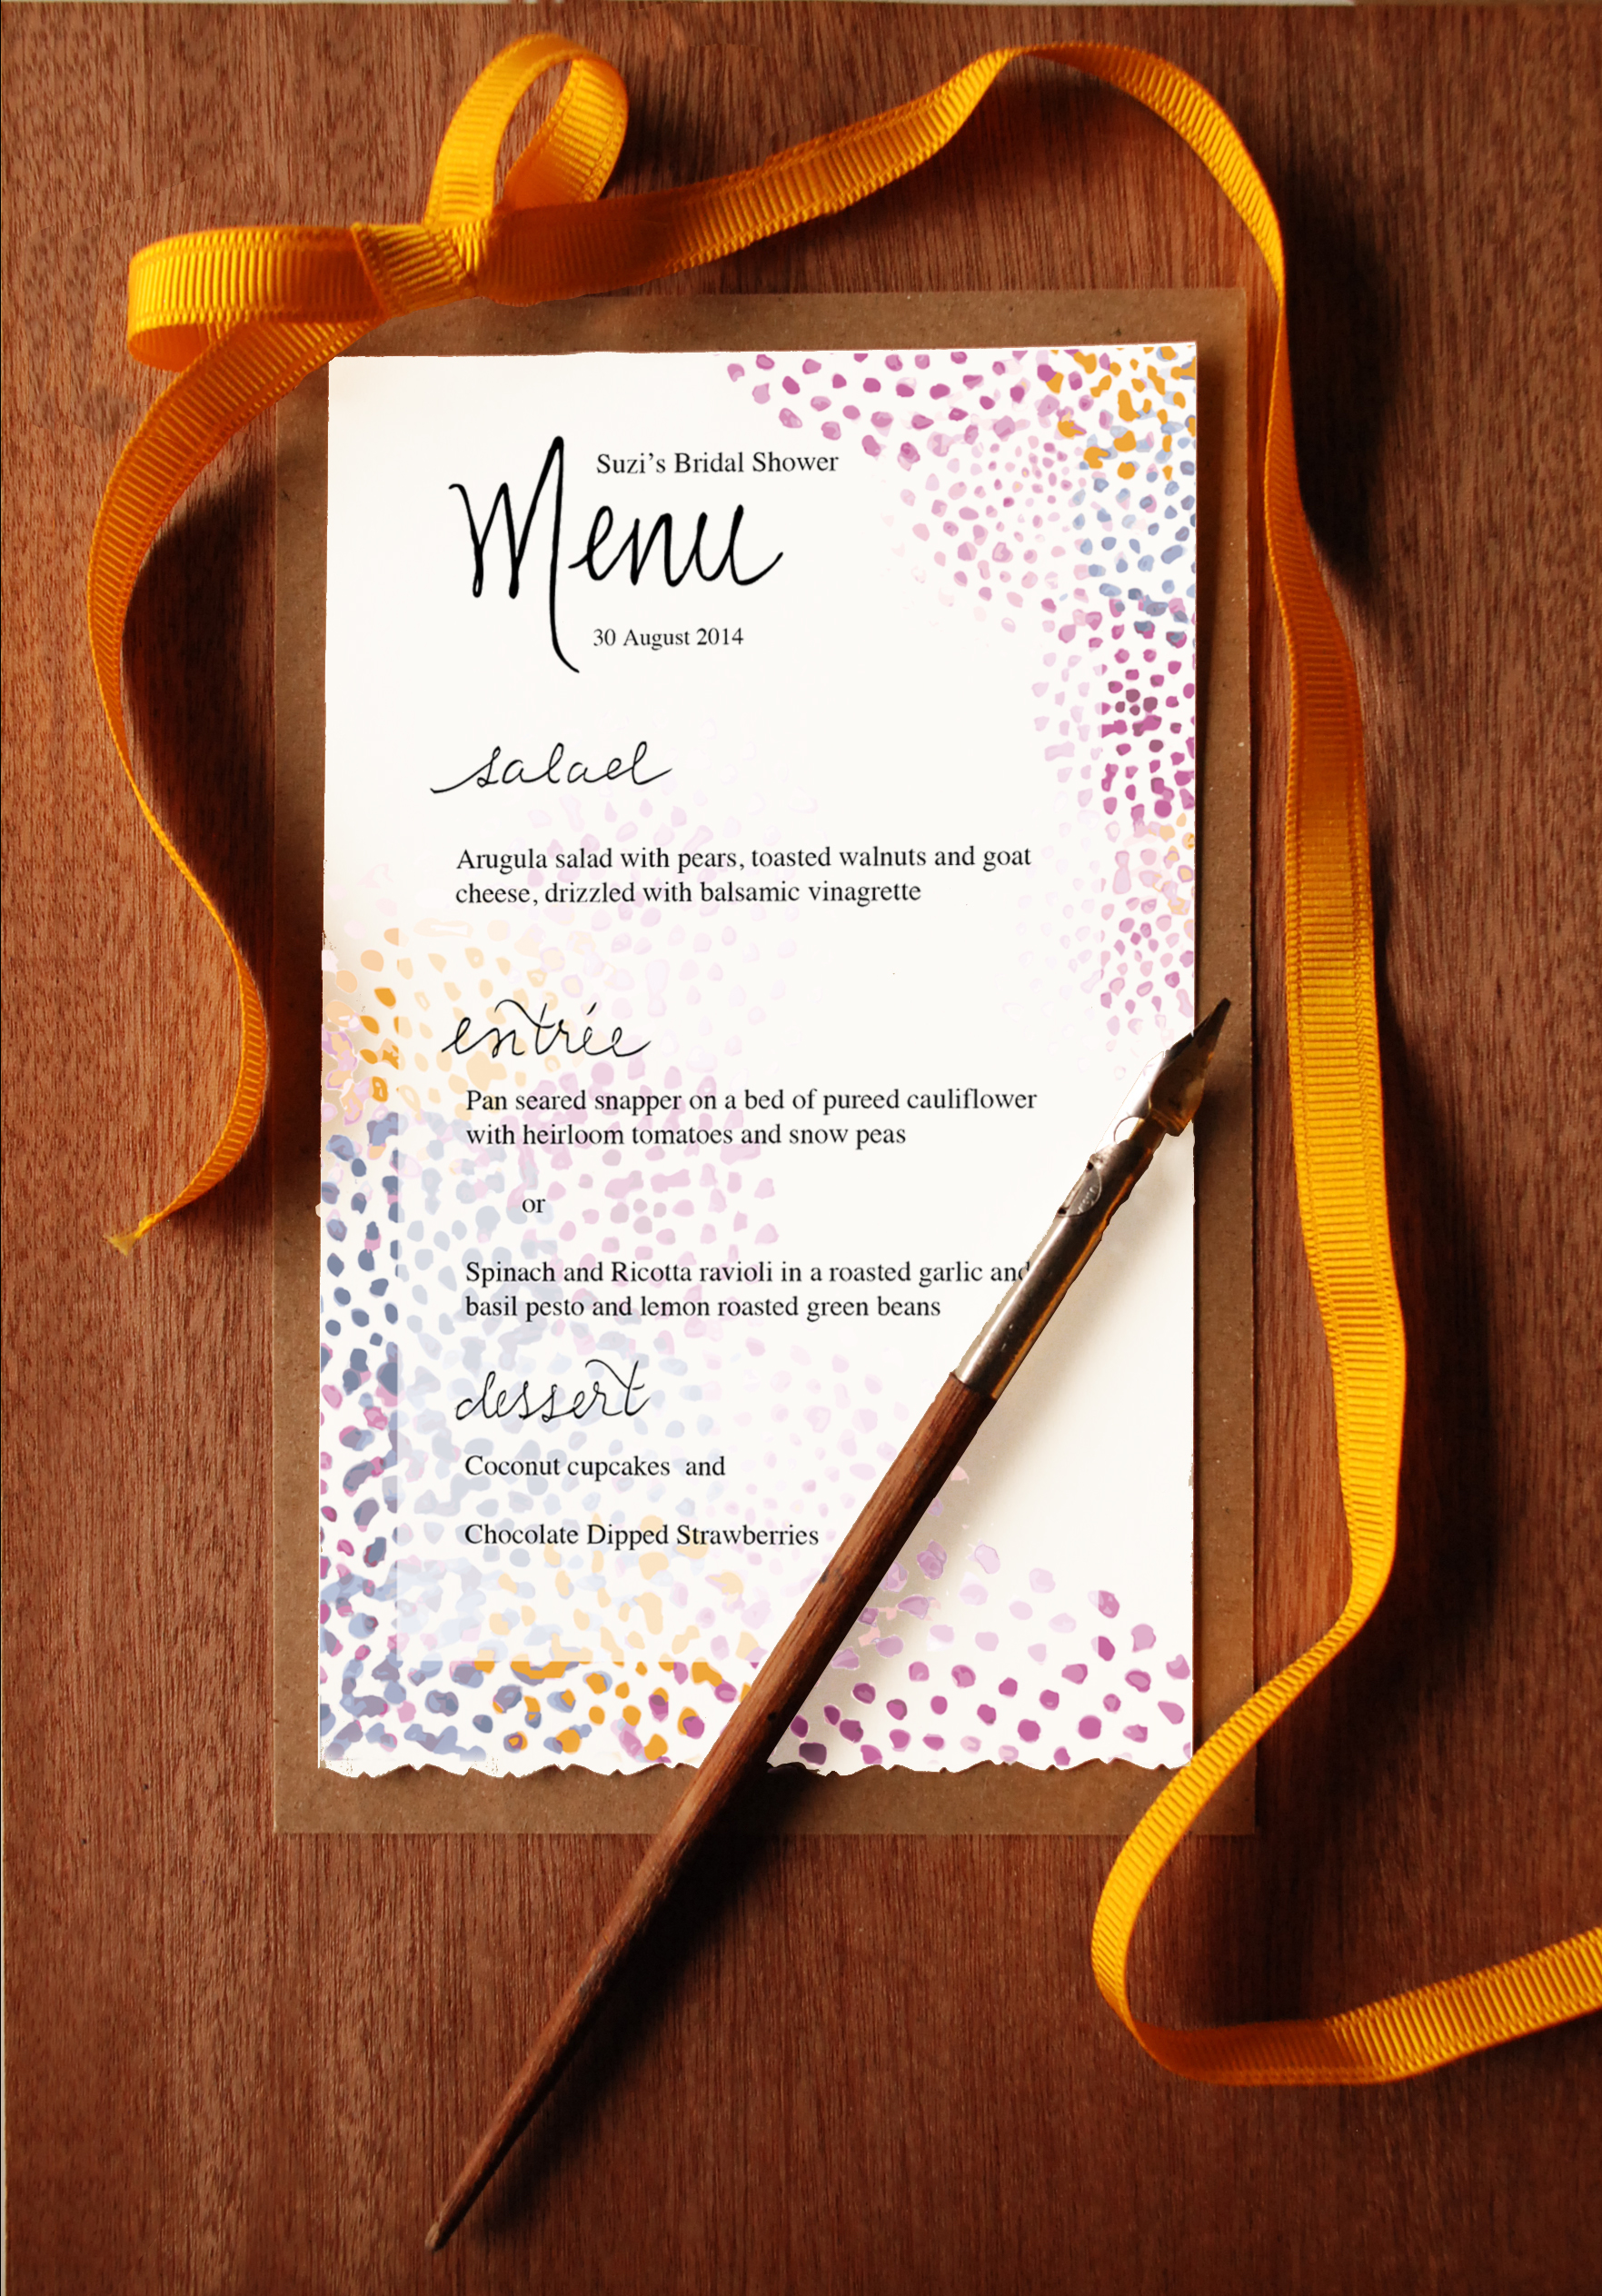 Suzi's Bridal Shower
Menu
30 August 2014
salad
Arugula salad with pears, toasted walnuts and goat
cheese, drizzled with balsamic vinagrette
entrée
Pan seared snapper on a bed of pureed cauliflower
with heirloom tomatoes and snow peas
or
Spinach and Ricotta ravioli in a roasted garlic and
basil pesto and lemon roasted green beans
dessert
Coconut cupcakes and
Chocolate Dipped Strawberries